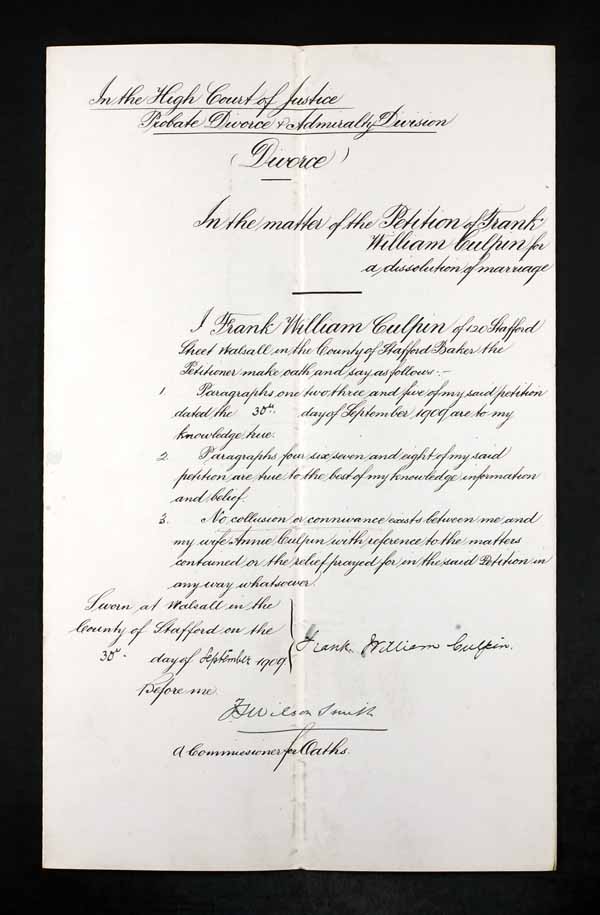 In the High Court of Justice
Probate Divorce & Admiralty Division
(Divorce)
In the matter of the Petition of Frank
William Culpin for
a dissolution of marriage
I Frank William Culpin of 120 Stafford
Street Walsall in the County of Stafford Baker the
Petitioner make oath and say as follows:-
1. Paragraphs one two three and five of my said petition
dated the 30th day of September 1909 are to my
knowledge true.
2. Paragraphs four six seven and eight of my said
petition are true to the best of my knowledge information
and belief.
3. No collusion or connivance exists between me and
my wife Annie Culpin with reference to the matters
contained or the relief prayed for in the said Petition in
any way whatsoever.
Sworn at Walsall in the
County of Stafford on the
30th day of September 1909
Frank William Culpin.
Before me
Wilson Smith
A Commissioner for Oaths.